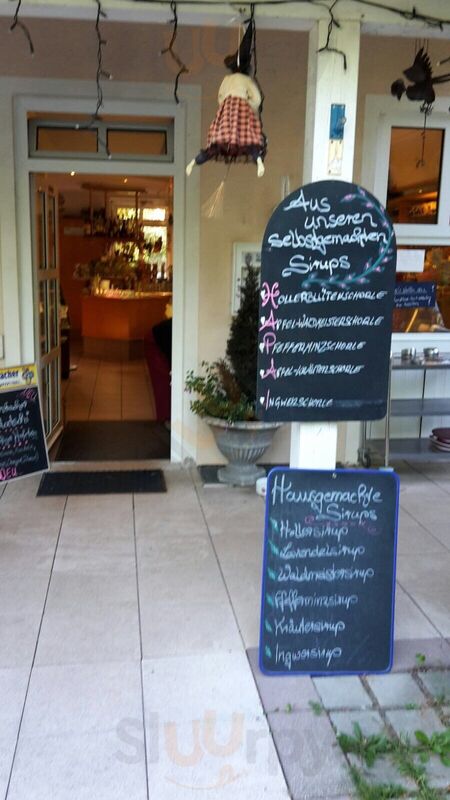 Aus
unseren
selbstgemachten
Sirups
HOLLERBLÜTENSCHORLE
APFELWALDMEISTERSCHORLE
PFEFFERMINZSCHORLE
APFEL-KRÄUTERSCHORLE
INGWERSCHORLE
Hausgemachte
Sirups
Hollersirup
Lavendelsirup
Waldmeistersirup
Pfefferminzsirup
Kräutersirup
Ingwersirup
acher
sluurpy